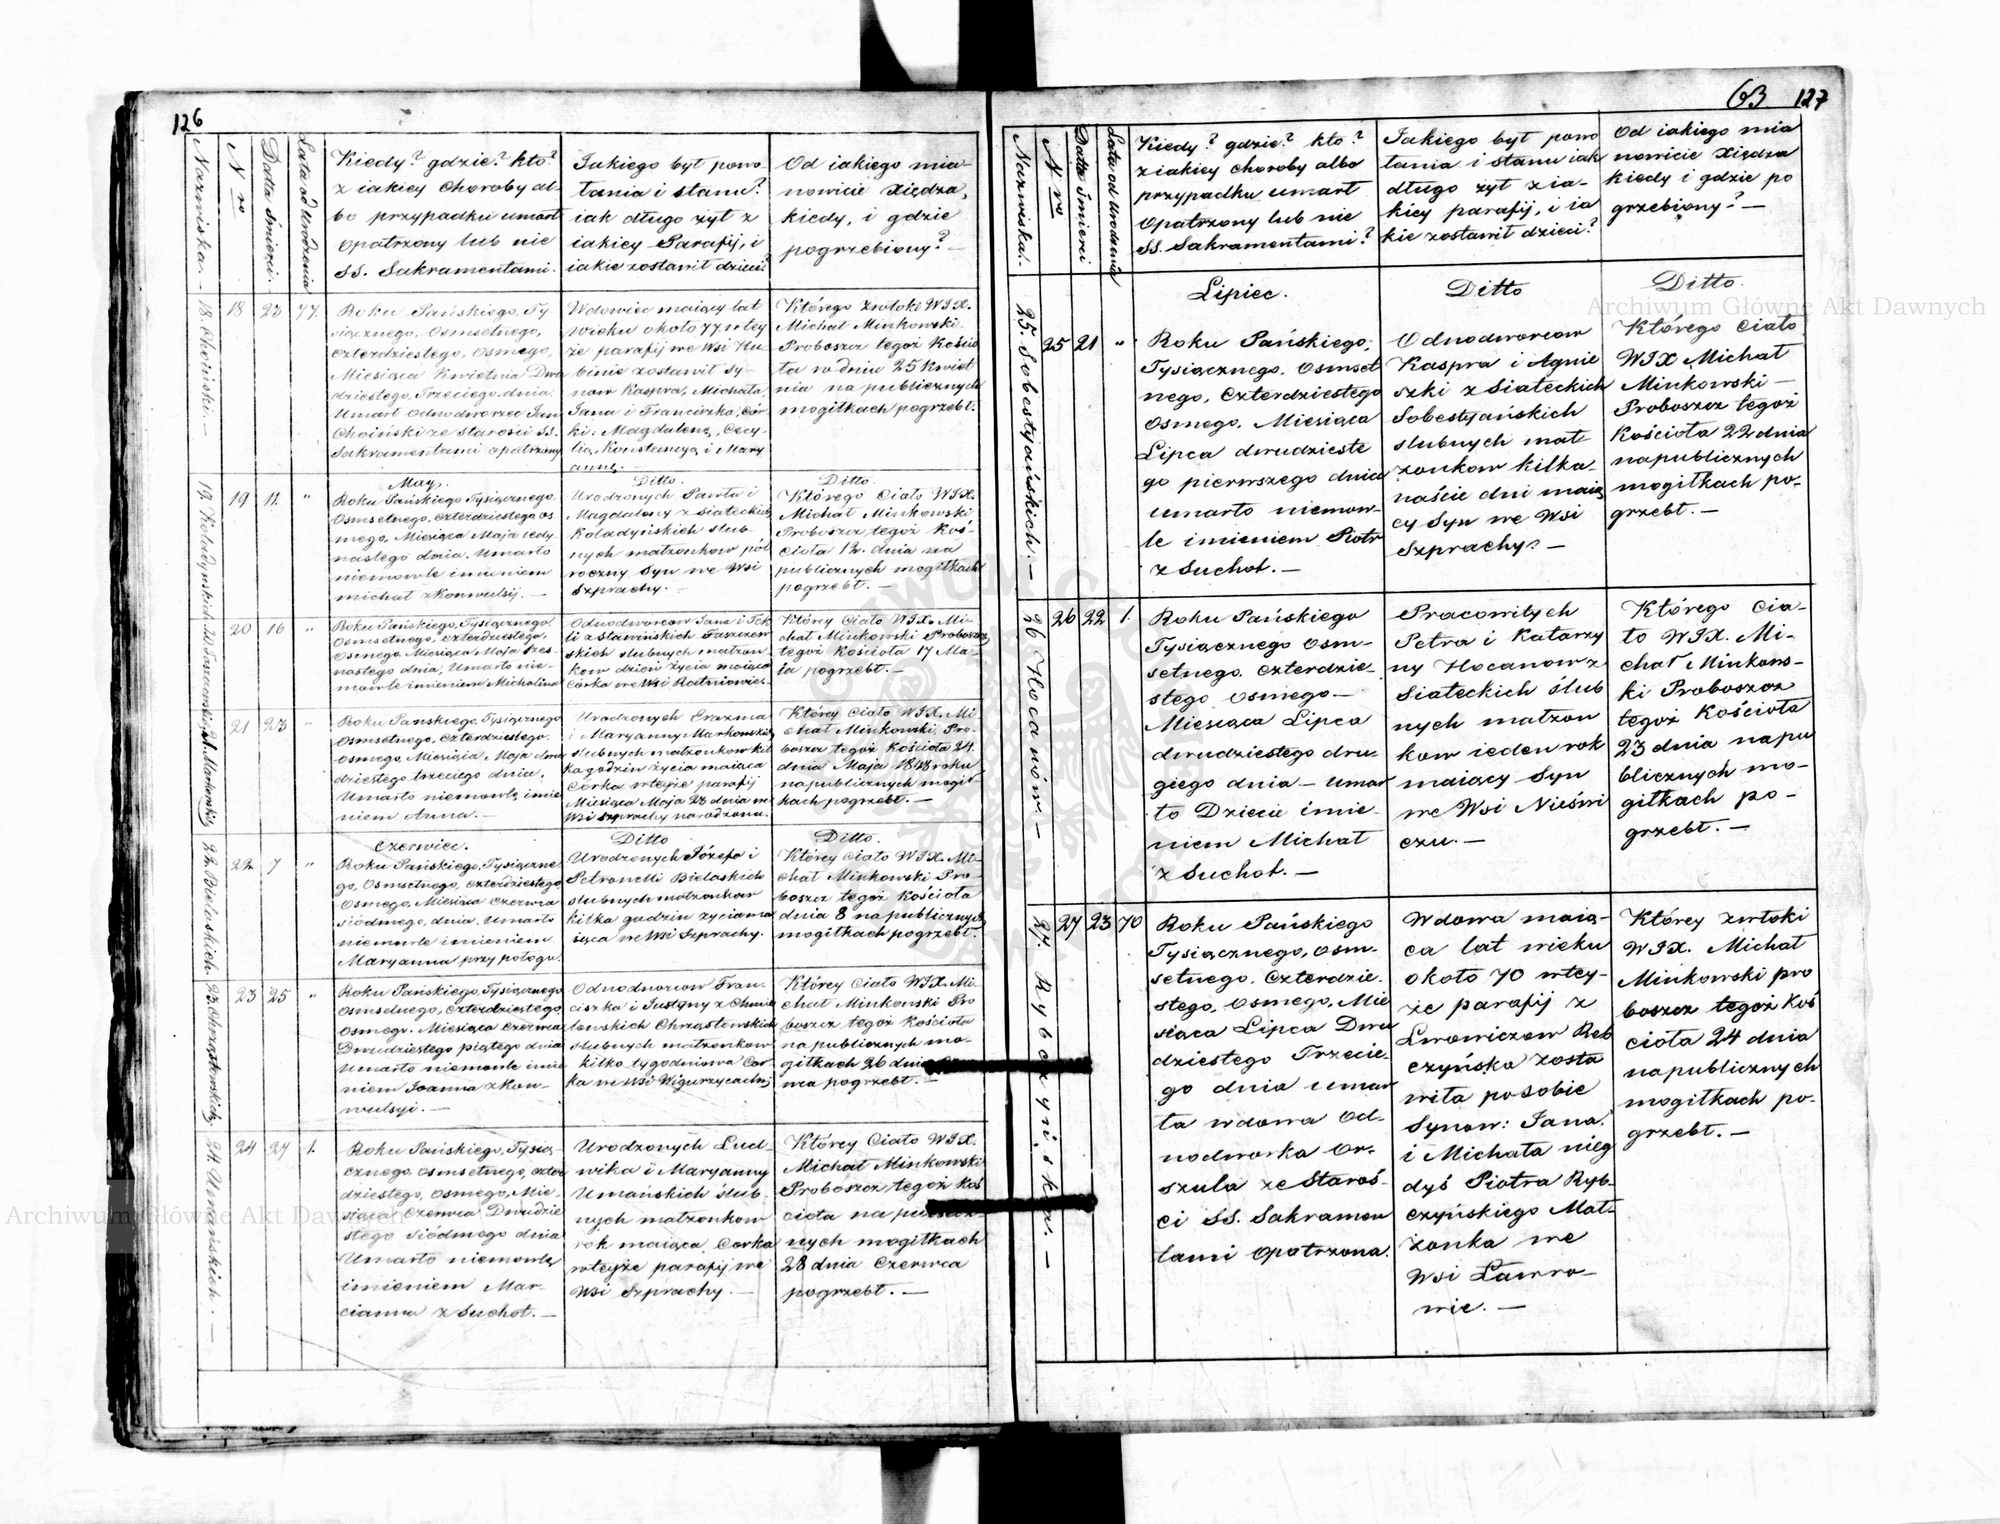 126
Nazwiska. —
N ro
Data Śmierci. —
Lata od Urodzenia
Kiedy? gdzie? kto?
z iakiey Choroby al-
bo przypadku umarł
Opatrzony lub nie
SS. Sakramentami.
Jakiego był powo
łania i stanu?
iak długo żył z
iakiey Parafij, i
iakie zostawił dzieci?
Od iakiego mia-
nowicie Xiędza,
kiedy, i gdzie
pogrzebiony? —
18. Choiński. —
18
23
77.
Roku Pańskiego, Ty
siącznego, Osmsetnego,
Czterdziestego, Osmego,
Miesiąca Kwietnia Dwu
dziestego, Trzeciego, dnia.
Umarł Odnodworzec Jan
Choiński ze Starości SS.
Sakramentami opatrzony
Wdowiec maiący lat
wieku około 77. wtey
że parafij we Wsi Hu
binie zostawił Sy-
now Kaspra, Michała,
Jana i Franciszka, Cór
ki: Magdalenę, Cecy-
lią, Konstancyą, i Mary
annę. —
Którego zwłoki WJX.
Michał Minkowski
Proboszcz tegoż Kościo
ła w dniu 25 Kwiet
nia na publicznych
mogiłkach pogrzebł.
May.
Ditto.
Ditto.
19. Koladyńskich
19
11.
"
Roku Pańskiego Tysiącznego.
Osmsetnego, Czterdziestego, os
mego, Miesiąca Maja iedy
nastego dnia. Umarło
niemowle imieniem
Michał z Konwulsij. —
Urodzonych Pawła i
Magdaleny z Siateckich
Koladyńskich ślub-
nych małżonkow pół
roczny Syn we Wsi
Szprachy. —
Którego Ciało WJX.
Michał Minkowski
Proboszcz tegoż Koś-
cioła 12. dnia na
publicznych mogiłkach
pogrzebł. —
20
16
"
Roku Pańskiego, Tysiącznego.
Osmsetnego, Czterdziestego,
Osmego, Miesiąca Maja Szes-
nastego dnia, Umarło nie-
mowle imieniem Michalina
Odnodworcow Jana i Tek
li z Sławińskich
skich ślubnych małżon
kow dzień życia maiąca
Córka we Wsi Ratniowie.
Którey Ciało WJX. Mi-
chał Minkowski Proboszcz
tegoż Kościoła 17 Ma-
ia pogrzebł. —
21. Markowskich
21
23
"
Roku Pańskiego, Tysiącznego
Osmsetnego, Czterdziestego.
Osmego, Miesiąca Maja dwu
dziestego trzeciego dnia,
Umarło niemowlę imie
niem Anna. —
Urodzonych Erazma
i Maryanny Markowskich
ślubnych małżonkow kil
ka godzin życia maiąca
Córka wteyże parafij
Miesiąca Maja 23 dnia we
Wsi Szprachy narodzona.
Którey Ciało WJX. Mi-
chał Minkowski, Pro-
boszcz tegoż Kościoła 24.
dnia Maja 1848 roku
na publicznych mogił-
kach pogrzebł. —
Czerwiec.
Ditto
Ditto.
22. Bielaskich
22
7
"
Roku Pańskiego, Tysiączne
go, Osmsetnego, Czterdziestego
Osmego, Miesiąca Czerwca
siódmego, dnia, Umarło
niemowle imieniem
Maryanna przy połogu.
Urodzonych Józefa i
Petronelli Bielaskich
ślubnych małżonkow
kilka godzin życia ma
iąca we Wsi Szprachy.
Którey Ciało WJX. Mi-
chał Minkowski Pro-
boszcz tegoż Kościoła
dnia 8 na publicznych
mogiłkach pogrzebł.
23. Chrząstewskich
23
25
"
Roku Pańskiego, Tysiącznego
Osmsetnego, Czterdziestego,
Osmego. Miesiąca Czerwca
Dwudziestego piątego dnia
Umarło niemowle imie
niem Joanna z Kon-
wulsyi. —
Odnodworcow Fran-
ciszka i Justyny z Chmie
lewskich Chrząstewskich
ślubnych małżonkow
kilko tygodniowa Cor-
ka we Wsi Wigurzycach.
Którey Ciało WJX. Mi-
chał Minkowski Pro
boszcz tegoż Kościoła
na publicznych mo-
giłkach 26 dnia
wca pogrzebł. —
24. Umańskich. —
24
27
1.
Roku Pańskiego, Tysią-
cznego, Osmsetnego, czter
dziestego, Osmego, Mie-
siąca Czerwca Dwudzie
stego Siódmego dnia
Umarło niemowlę
imieniem Mar-
cianna z Suchot. —
Urodzonych Lud-
wika i Maryanny
Umańskich ślub-
nych małżonkow
rok maiąca Corka
wteyże parafij we
Wsi Szprachy. —
Którey Ciało WJX.
Michał Minkowski
Proboszcz tegoż Koś
cioła na publicz-
nych mogiłkach
28 dnia Czerwca
pogrzebł. —
63 127
Nazwiska. —
N ro
Data Śmierci
Lata od Urodzenia
Kiedy? gdzie? kto?
z iakiey choroby albo
przypadku umarł
Opatrzony lub nie
SS. Sakramentami?
Jakiego był powo
łania i stanu iak
długo żył z ia-
kiey parafij, i ia
kie zostawił dzieci?
Od iakiego mia
nowicie Xiędza
kiedy i gdzie po
grzebiony? —
Lipiec.
Ditto
Ditto.
25. Sobestyańskich. —
25
21
"
Roku Pańskiego,
Tysiącznego, Osmset
nego, Czterdziestego
Osmego, Miesiąca
Lipca dwudzieste
go pierwszego dnia
umarło niemow-
le imieniem Piotr
z Suchot. —
Odnodworcow
Kaspra i Agnie
szki z Siateckich
Sobestyańskich
ślubnych mał-
żonkow kilka-
naście dni maią
cy Syn we Wsi
Szprachy. —
Którego Ciało
WJX Michał
Minkowski —
Proboszcz tegoż
Kościoła 22 dnia
na publicznych
mogiłkach po-
grzebł. —
26. Hocanów —
26
22
1.
Roku Pańskiego
Tysiącznego Osm-
setnego, Czterdzie-
stego Osmego —
Miesiąca Lipca
dwudziestego dru-
giego dnia — umar
ło Dziecie imie-
niem Michał
z Suchot. —
Pracowitych
Petra i Katarzy
ny Hocanow z
Siateckich ślub
nych małżon
kow ieden rok
maiący Syn
we Wsi Nieświ
czu. —
Którego Cia-
ło WJX. Mi-
chał Minkows-
ki Proboszcz
tegoż Kościoła
23 dnia na pu
blicznych mo-
giłkach po-
grzebł. —
27. Rybczyńska. —
27
23
70
Roku Pańskiego
Tysiącznego, Osm-
setnego, Czterdzie-
stego, Osmego, Mie
siąca Lipca Dwu
dziestego Trzecie-
go dnia umar
ła wdowa Od-
nodworka Or-
szula ze Staroś-
ci SS. Sakramen
tami opatrzona.
Wdowa maią-
ca lat wieku
około 70 wtey-
że parafij z
Lwowiczow Reb
czyńska zosta
wiła po sobie
Synow: Jana,
i Michała nieg
dyś Piotra Ryb-
czyńskiego Mał-
żonka we
Wsi Ławro-
wie. —
Którey zwłoki
WJX. Michał
Minkowski pro
boszcz tegoż Koś
cioła 24 dnia
na publicznych
mogiłkach po-
grzebł. —
Archiwum Główne Akt Dawnych
Archiwum Główne Akt Dawnych